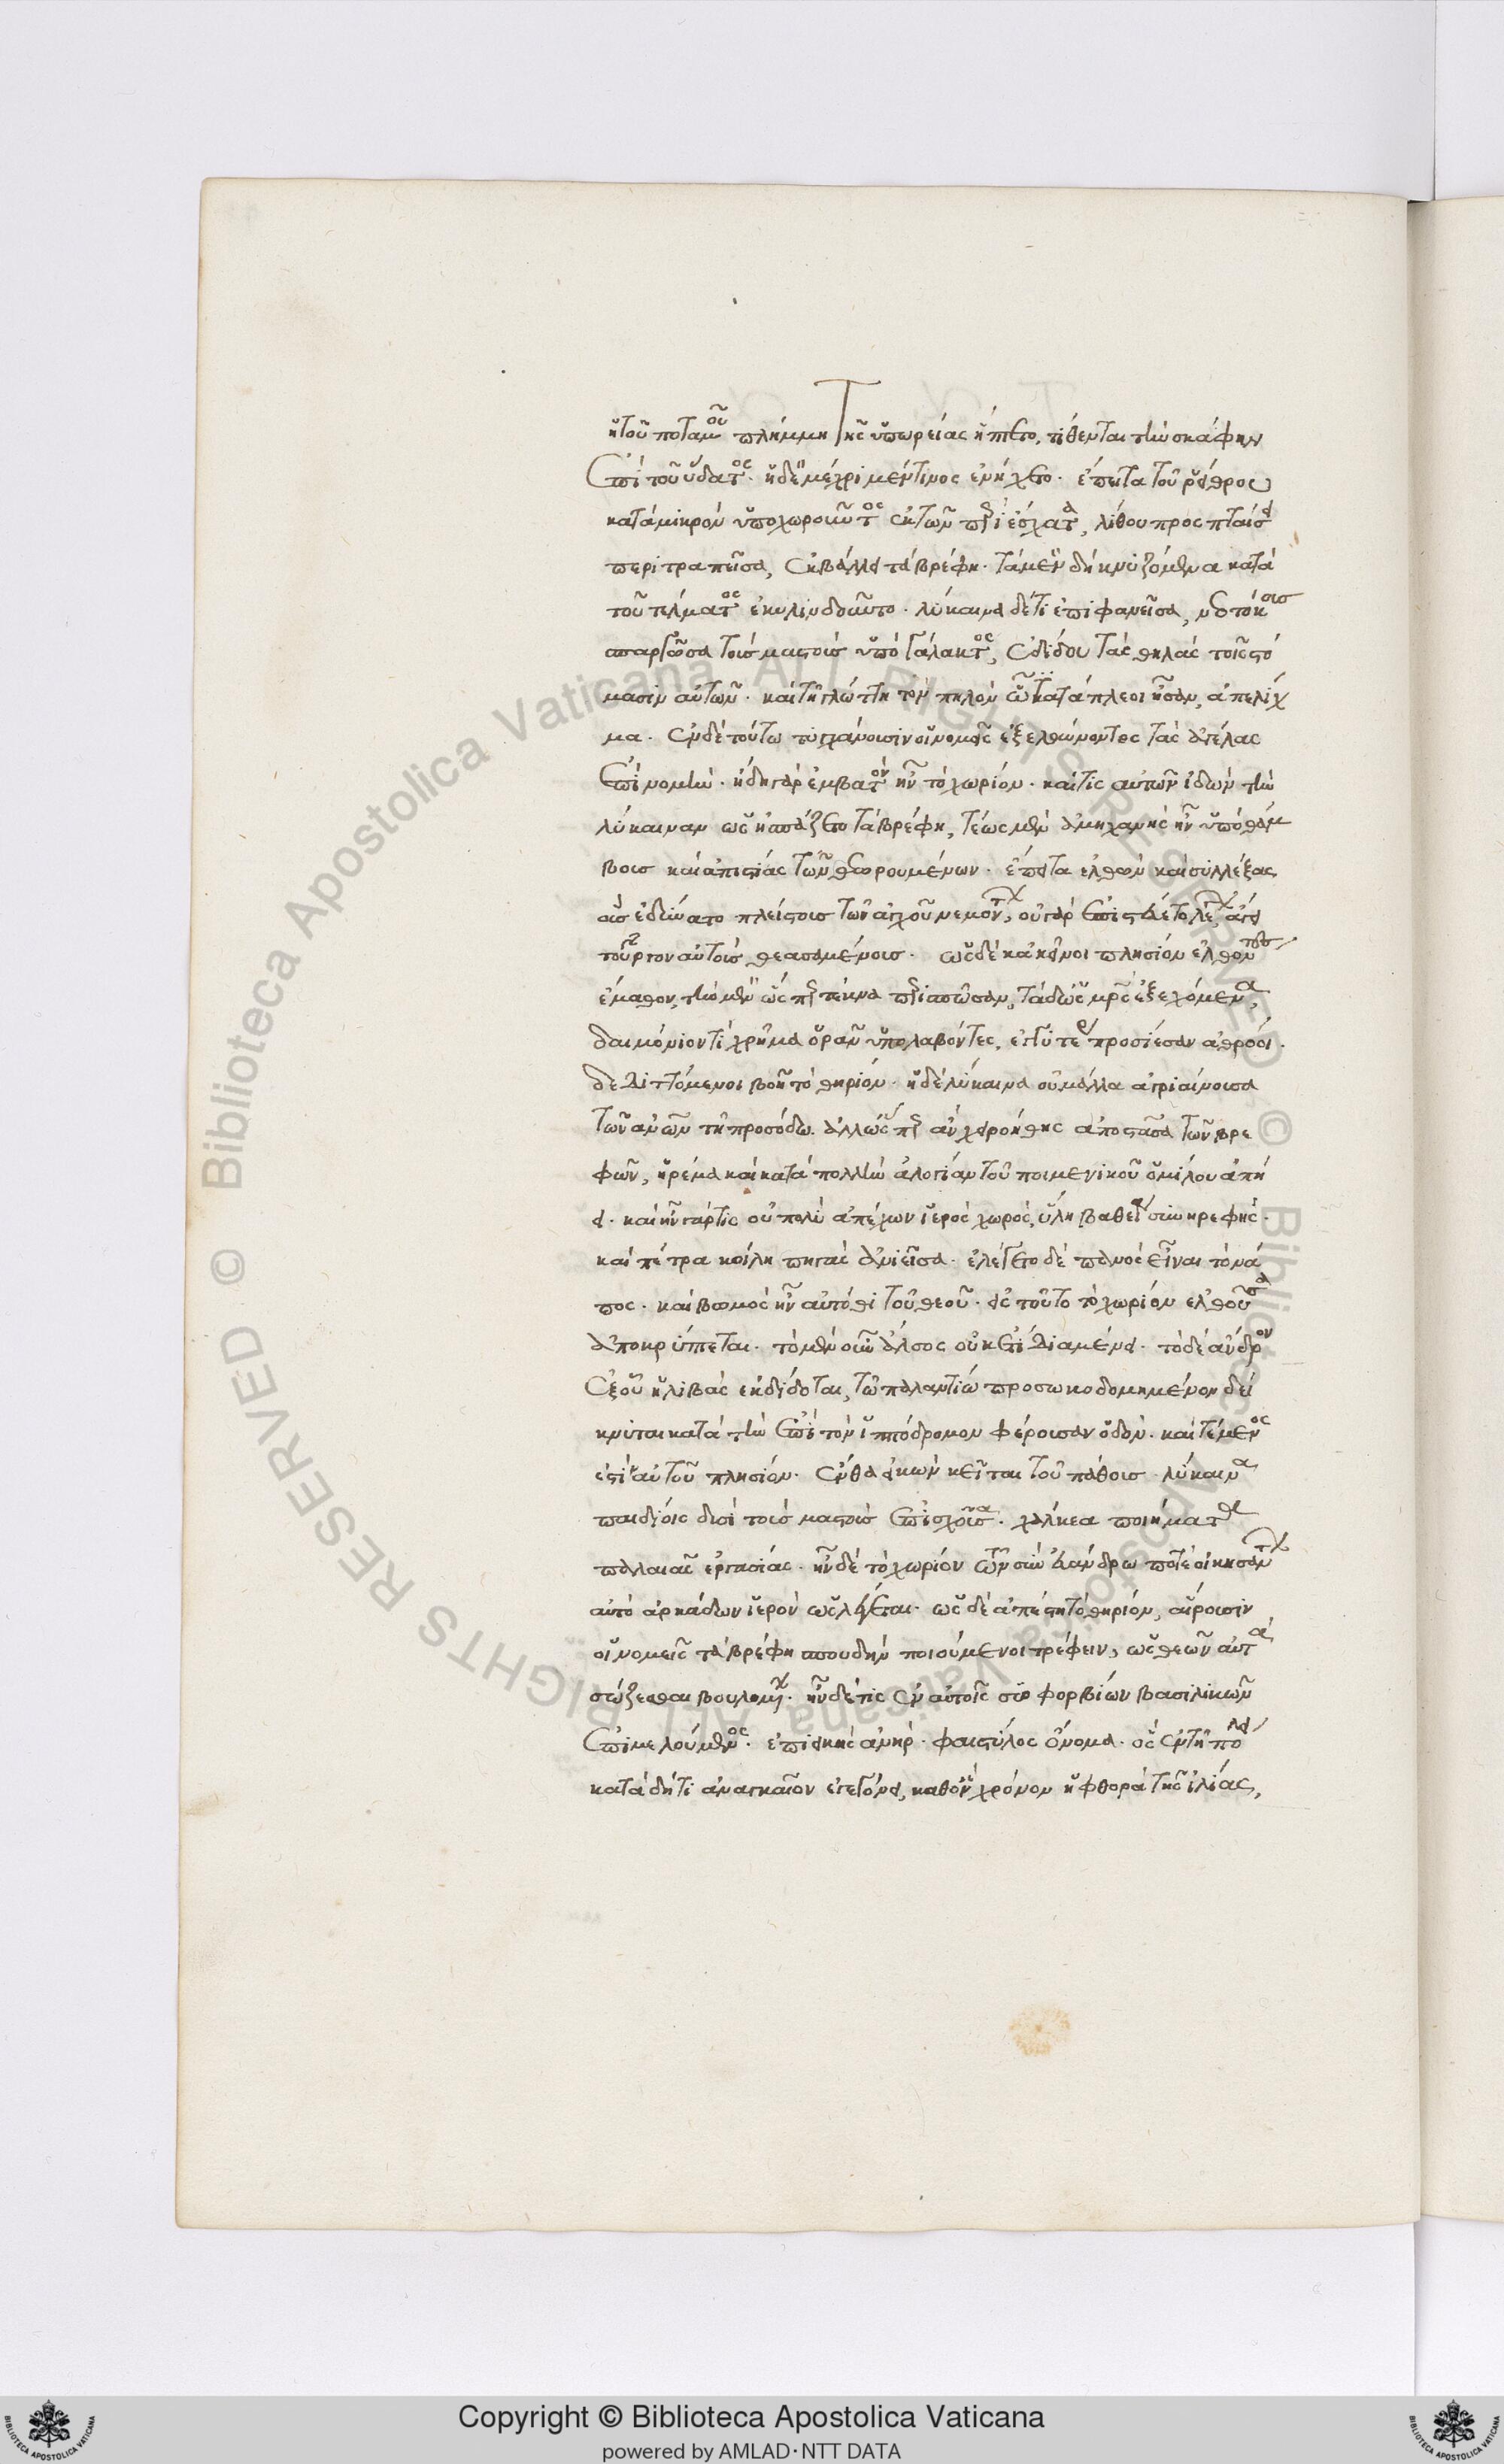 ἡ τοῦ ποταμοῦ πλήμμη τῆς ὑπωρείας ἥπτετο, τίθενται τὴν σκάφην
ἐπὶ τοῦ ὕδατος. ἡ δὲ μέχρι μέν τινος ἐνήχετο. ἔπειτα τοῦ ῥείθρου
κατὰ μικρὸν ὑποχωροῦντος ἐκ τῶν περὶ ἔσχατα, λίθου προσπταίσει
περιτραπεῖσα, ἐκβάλλει τὰ βρέφη. τὰ μὲν δὴ κνυζόμενα κατὰ
τοῦ τέλματος ἐκυλινδοῦντο. λύκαινα δέ τις ἐπιφανεῖσα, νεοτόκος
σπαργῶσα τοὺς μαστοὺς ὑπὸ γάλακτος, ἐδίδου τὰς θηλὰς τοῖς στό
μασιν αὐτῶν. καὶ τῇ γλώττῃ τὸν πηλὸν ᾧ κατάπλεοι ἦσαν, ἀπελίχ
μα. ἐν δὲ τούτῳ τυγχάνουσιν οἱ νομεῖς ἐξελαύνοντες τὰς ἀγέλας
ἐπὶ νομὴν. ἤδη γὰρ ἐμβατὸν ἦν τὸ χωρίον. καί τις αὐτῶν ἰδὼν τὴν
λύκαιναν ὡς ἠσπάζετο τὰ βρέφη, τέως μὲν ἀμηχανὴς ἦν ὑπὸ θάμ
βους καὶ ἀπιστίας τῶν θεωρουμένων. ἔπειτα ἐλθὼν καὶ συλλέξας
οὓς ἐδύνατο πλείστους τῶν ἀγχοῦ νεμόντων, οὐ γὰρ ἐπιστεύετο λέγων, ἄγει
τοὔργον αὐτοὺς θεασαμένους. ὡς δὲ κἀκεῖνοι πλησίον ἐλθόντες
ἔμαθον, τὴν μὲν ὡς περὶ τέκνα περιέπουσαν, τὰ δ' ὡς μητρὸς ἐξεχόμενα,
δαιμόνιόν τι χρῆμα ὁρᾶν ὑπολαβόντες, ἐγγυτέρω προσίεσαν ἀθρόοι.
δεδιττόμενοι βοῇ τὸ θηρίον. ἡ δὲ λύκαινα οὐ μάλα ἀγριαίνουσα
τῶν ἀνθρώπων τῇ προσόδῳ. ἀλλ' ὡσπερεὶ ἂν χειροήθης ἀποστᾶσα τῶν βρε
φῶν, ἠρέμα καὶ κατὰ πολλὴν ἀλογίαν τοῦ ποιμενικοῦ ὁμίλου ἀπή
ει. καὶ ἦν γάρ τις οὐ πολὺ ἀπέχων ἱερὸς χῶρος, ὕλῃ βαθείᾳ συνηρεφής.
καὶ πέτρα κοίλη πηγὰς ἀνιεῖσα. ἐλέγετο δὲ πανὸς εἶναι τὸ νά
πος. καὶ βωμὸς ἦν αὐτόθι τοῦ θεοῦ. εἰς τοῦτο τὸ χωρίον ἐλθοῦσα
ἀποκρύπτεται. τὸ μὲν οὖν ἄλσος οὐκέτι διαμένει. τὸ δὲ ἄνδρον
ἐξ οὗ ἡ λιβὰς ἐκδίδοται, τῷ παλαντίῳ προσῳκοδομημένον δεί
κνυται κατὰ τὴν ἐπὶ τὸν ἱππόδρομον φέρουσαν ὁδόν. καὶ τέμενος
ἐστὶν αὐτοῦ πλησίον. ἔνθα εἰκὼν κεῖται τοῦ πάθους. λύκαινα
παιδίοις δυσὶ τοὺς μαστοὺς ἐπισχοῦσα. χάλκεα ποιήματα
παλαιᾶς ἐργασίας. ἦν δὲ τὸ χωρίον τῶν σὺν εὐάνδρῳ ποτὲ οἰκησάντων
αὐτὸ ἀρκάδων ἱερὸν ὡς λέγεται. ὡς δὲ ἀπέστη τὸ θηρίον, αἴρουσιν
οἱ νομεῖς τὰ βρέφη σπουδὴν ποιούμενοι τρέφειν, ὡς θεῶν αὐτὰ
σώζεσθαι βουλομένων. ἦν δέ τις ἐν αὐτοῖς συοφορβίων βασιλικῶν
ἐπιμελούμενος. ἐπιεικὴς ἀνήρ. φαιστύλος ὄνομα. ὃς ἐν τῇ πόλει
κατὰ δή τι ἀναγκαῖον ἐγεγόνει, καθ' ὃν χρόνον ἡ φθορὰ τῆς ἰλίας,